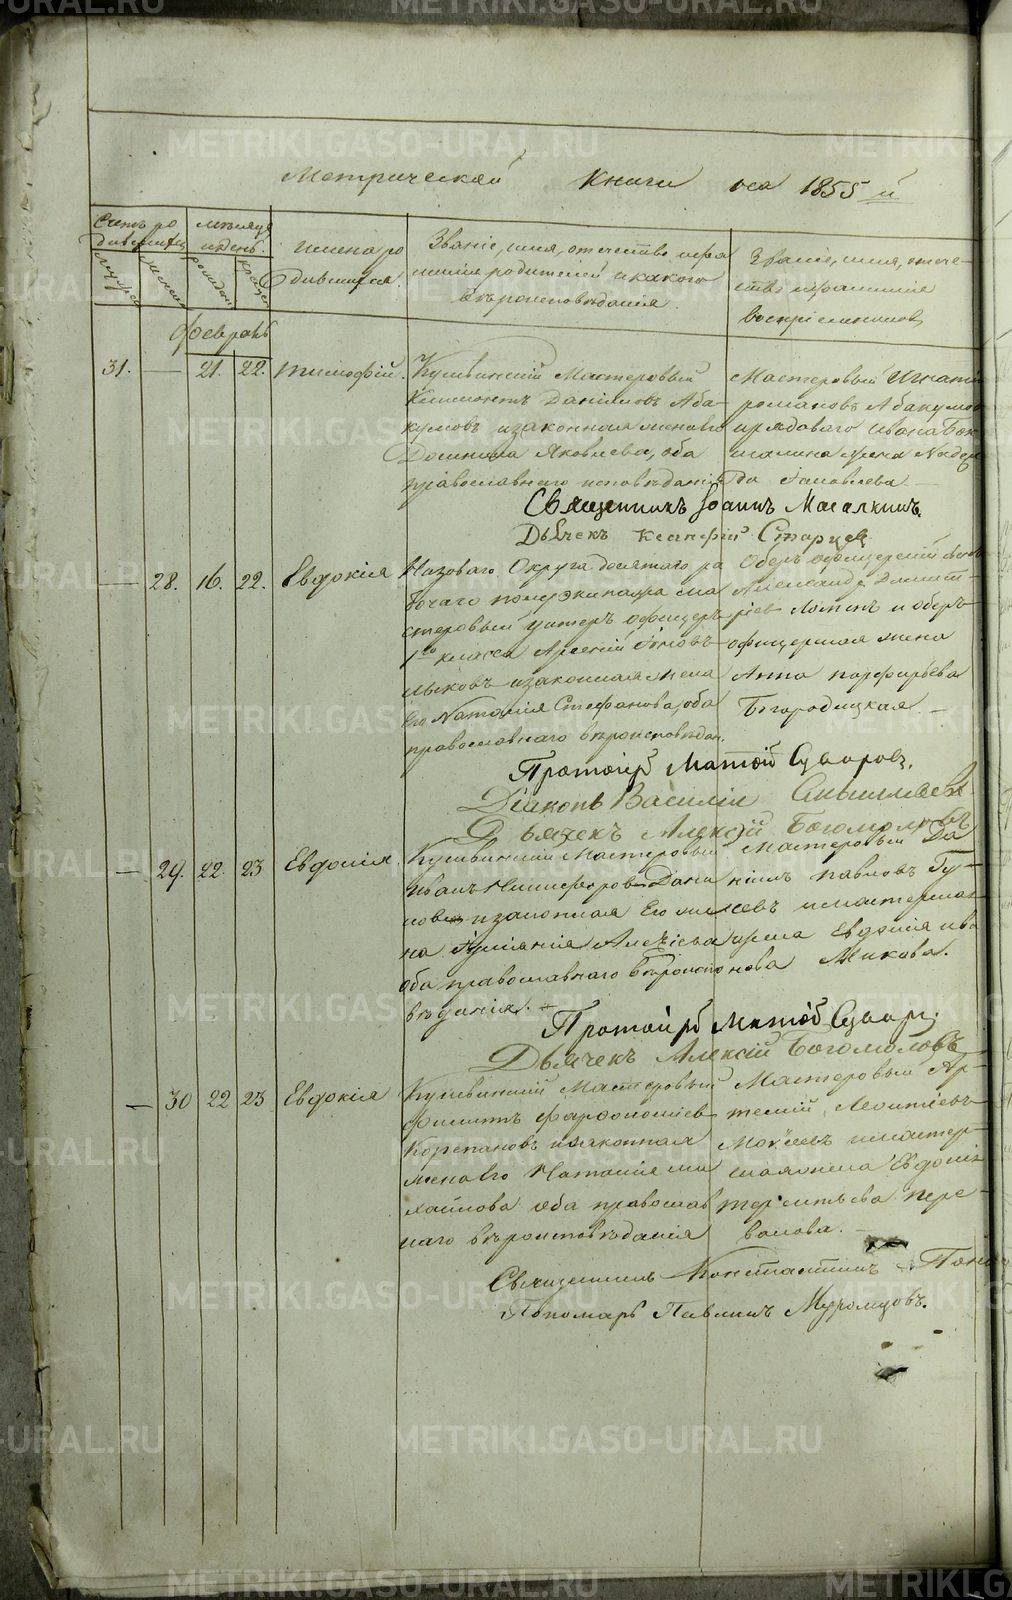 Метрической Книги на 1855 й
Счетъ ро
дившихся
Месяцъ
и день.
имена ро
дившихся.
Званіе, имя, отечество и фа
милія родителей и какого
вѣроисповѣданія.
Званіе, имя, отече-
ство и фамилія
воспріемниковъ
Февраль
31. — 21. 22. Тимофій.
Кушвинскій Мастеровый
Климонтъ Даніиловъ Аба-
кумовъ и законная жена его
Домника Яковлева, оба
православнаго исповѣданія
Мастеровый Игнатій
романовъ Абакумов
и рядоваго Ивана
жена Надеж
да Іаковлева —
Священникъ Іоаннъ Масалкинъ.
Дьячекъ Ксанфій Старцев
— 28. 16. 22. Евдокія
Округа десятаго ра
бочаго полуэкипажа ма
стеровый унтеръ офицеръ
1го класса Арсеній
и законная жена
его Наталія Стефанова, оба
православнаго вѣроисповѣдан.
Оберъ офицерскій
Александр Димит-
ріев и оберъ-
офицерская жена
Анна парфирьева
Богородицкая —
Протоіерей Матѳій Суворов.
Діаконъ Василій
Дьячекъ Алексій Богомоловъ
— 29. 22. 23 Евдокія.
Кушвинскій Мастеровый
Иванъ Никифоров
и законная Его же
на Алексіева
оба православнаго вѣроиспо
вѣданія. —
Мастеровый Да
ніилъ павловъ Гу-
севъ и мастерска-
го жена Евдокія ива
нова Микова.
Протоіерей Матѳій Суворов.
Дьячекъ Алексій Богомоловъ
— 30 22 23 Евдокія
Кушвинскій Мастеровый
Филиппъ Фарфоломіев
Корепановъ и законная
жена его Наталія ми
хайлова оба православ
наго вѣроисповѣданія
Мастеровый Ар-
темій Леонтіевъ
и мастер-
жена Евдокія
терентьева пере-
валова. —
Священникъ Константинъ Попов
Пономарь Павлинъ Муромцовъ.
METRIKI.GASO-URAL.RU